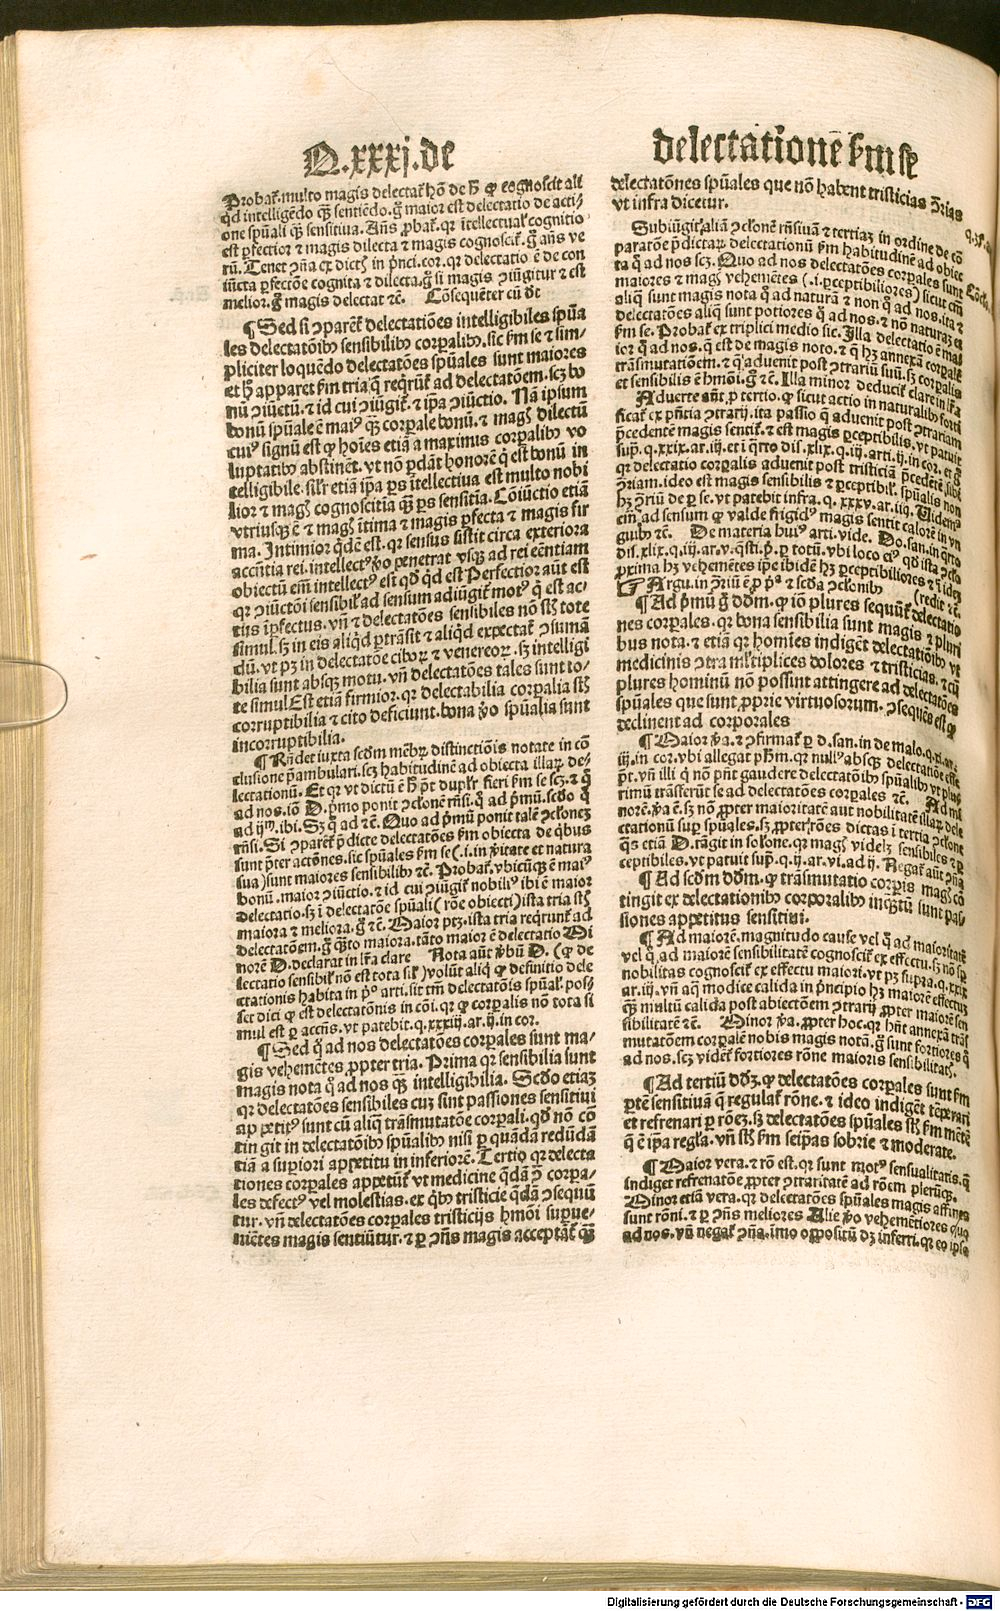 Q.xxxj.de
Probat̄.multo magis delectat̄ hō de h̄ ꝙ cognoscit ali
q̇d intelligēdo q̄ȝ sentiēdo.g̊ maior est delectatio de acti⸗
one spūali q̄ȝ sensitiua. Añs ꝓbat̄.qꝛ ītellectual̓ cognitio
est ꝑfectior ⁊ magis dilecta ⁊ magis cognoscit̄.g̊ añs ve
rū. Tenet ꝯña ex dictꝭ in pͥnci.cor.qꝛ delectatio ē de con
iūcta ꝑfectōe cognita ⁊ dilecta.g̊ si magis ꝯiūgitur ⁊ est
melior.g̊ magis delectat ⁊c̄.    Cōsequēter cū d̄t
¶ Sed si ꝯparēt̄ delectatiōes intelligibiles spūa
les delectatōibꝰ sensibilibꝰ corꝑalibꝰ.sic ẜm se ⁊ sim⸗
pliciter loquēdo delectatōes spūales sunt maiores
et h̄ apparet ẜm tria q̄ reqͥrūt̄ ad delectatōem.scȝ bo
nū ꝯiūctū.⁊ id cui ꝯiūgit̄.⁊ ip̄a ꝯiūctio. Nā ipsum
bonū spūale ē maiꝰ q̄ȝ corꝑale bonū.⁊ magꝭ dilectū
cuiꝰ signū est ꝙ hoīes etiā a maximis corꝑalibꝰ vo
luptatibꝰ abstinēt.vt nō ꝑdāt honorē q̇ est bonū in
telligibile.sil̓r etiā ip̄a ꝑs ītellectiua est multo nobi
lior ⁊ magꝭ cognoscitīa q̄ȝ ꝑs sensitīa. Cōiūctio etiā
vtriusqȝ ē ⁊ magꝭ ītima ⁊ magis ꝑfecta ⁊ magis fir
ma. Intimior qͥdē est.qꝛ sensus sistit circa exteriora
accn̄tia rei.intellectꝰ ꝟo penetrat vsqȝ ad rei eēntiam
obiectū em̄ intellectꝰ est q̇d q̇d est Perfectior aūt est
qꝛ ꝯiūctōi sensibil̓ ad sensum adiūgit̄ motꝰ q̇ est ac⸗
tus īꝑfectus.vñ ⁊ delectatōes sensibiles nō sūt tote
simul.sȝ in eis aliq̇d ꝑtrāsit ⁊ aliq̇d expectat̄ ꝯsumā
dū.vt pȝ in delectatōe ciboꝝ ⁊ venereoꝝ.sȝ intelligi
bilia sunt absqȝ motu.vñ delectatōes tales sunt to⸗
te simul Est etiā firmior.qꝛ delectabilia corꝑalia sūt
corruptibilia ⁊ cito deficiunt.bona ꝟo spūalia sunt
incorruptibilia.
¶ Rn̄det iuxta scd̓m mēbꝝ distinctiōis notate in cō
clusione pͥambulari.scȝ habitudinē ad obiecta illaꝝ de⸗
lectationū. Et qꝛ vt dictū ē h̄ pōt dupl̓r fieri ẜm se scȝ.⁊ q̇
ad nos.iō D.pͥmo ponit ꝯclōnē rn̄si.q̇ ad pͥmū.scd̓o q̇
ad ijᵐ.ibi. Sȝ q̇ ad ⁊c̄. Quo ad pͥmū ponit talē ꝯclōneȝ
rn̄si. Si ꝯparēt̄ pͥdicte delectatōes ẜm obiecta de qͥbus
sunt pͥter actōnes.sic spūales ẜm se (.i.in ꝟitate et natura
sua) sunt maiores sensibilibꝰ ⁊c̄. Probat̄.vbicūqȝ ē maiꝰ
bonū.maior ꝯiūctio.⁊ id cui ꝯiūgit̄ nobiliꝰ ibi ē maior
delectatio.sȝ ī delectatōe spūali (rōe obiecti) ista tria sūt
maiora ⁊ meliora.g̊ ⁊c̄. Maior ptȝ.ista tria reqͥrunt̄ ad
delectatōem.g̊ q̄ȝto maiora.tāto maior ē delectatio Mi
norē D.declarat in lr̄a clare    Nota aūt ꝟbū D. (ꝙ de
lectatio sensibil̓ nō est tota sil̓) volūt aliq̇ ꝙ definitio dele
ctationis habita in pͥo arti.sit tm̄ delectatōis spūal̓.pos⸗
set dici ꝙ est delectatōnis in cōi.qꝛ ꝙ corꝑalis nō tota si
mul est ꝑ accn̄s.vt patebit.q.xxxiij.ar.ij.in cor.
¶ Sed q̇ ad nos delectatōes corꝑales sunt ma⸗
gis vehemētes ꝓpter tria. Prima qꝛ sensibilia sunt
magis nota q̇ ad nos q̄ȝ intelligibilia. Scd̓o etiaȝ
qꝛ delectatōes sensibiles cuȝ sint passiones sensitiui
appetitꝰ sunt cū aliq̄ trāsmutatōe corꝑali.qd̓ nō cō
tingit in delectatōibꝰ spūalibꝰ nisi ꝑ quādā redūdā
tiā a suꝑiori appetitu in inferiorē. Tertio qꝛ delecta
tiones corꝑales appetūt̄ vt medicine q̄dā ꝯͣ corꝑa⸗
les defectꝰ vel molestias.ex qͥbꝰ tristicie q̄dā ꝯsequū
tur.vñ delectatōes corꝑales tristicijs hmōi suꝑue⸗
niētes magis sentiūtur.⁊ ꝑ ꝯn̄s magis acceptāt̄ q̄ȝ
delectationē ẜm se
delectatōnes spūales que nō habent tristicias ꝯͣrias
vt infra dicetur.
Subiūgit̄ aliā ꝯclōnē rn̄siuā ⁊ tertiaȝ in ordine de cō
paratōe pͥdictaꝝ delectationū ẜm habitudinē ad obiec
ta q̇ ad nos scȝ. Quo ad nos delectatōes corꝑales sunt
maiores ⁊ magꝭ vehemētes (.i.ꝑceptibiliores) sicut em̄
aliq̄ sunt magis nota q̇ ad naturā ⁊ non q̇ ad nos.ita ⁊
delectatōes aliq̄ sunt potiores q̇ ad nos.⁊ nō naturaȝ et
ẜm se. Probat̄ ex triplici medio sic. Illa delectatio ē ma
ior q̇ ad nos.q̄ est de magis noto.⁊ q̄ hȝ annexā corꝑalē
trāsmutatiōem.⁊ q̄ aduenit post ꝯtrariū suū.sȝ corꝑalis
et sensibilis ē hmōi.g̊ ⁊c̄. Illa minor deducit̄ clare in lr̄a
Aduerte aūt ꝓ tertio.ꝙ sicut actio in naturalibꝰ forti
ficat̄ ex pͥn̄tia ꝯtrarij.ita passio q̄ aduenit post ꝯtrariam
pͥcedentē magis sentit̄.⁊ est magis ꝑceptibilis.vt patuit
sup̄.q.xxix.ar.iij.et i q̄rto dis.xlix.q.iij.arti.ij.in cor.et g̊
qꝛ delectatio corꝑalis aduenit post tristiciā pͥcedētē sibi
ꝯͣriam.ideo est magis sensibilis ⁊ ꝑceptibil̓.spūalis non
hȝ ꝯͣriū de ꝑ se.vt patebit infra.q.xxxv.ar.iiij. Uidemꝰ
em̄ ad sensum ꝙ valde frigidꝰ magis sentit calorē in vn
guibꝰ ⁊c̄.    De materia huiꝰ arti.vide. Do.san.in q̄rto
dis.xlix.q.iij.ar.v.q̄sti.pͥ.ꝑ totū.vbi loco eiꝰ qd̓ ista ꝯclo
proxima hȝ vehemētes ip̄e ibidē hȝ ꝑceptibiliores ⁊ ī ideȝ
☞ Argu.in ꝯͣriū ē ꝓ pͣ ⁊ scd̓a ꝯclōnibꝰ    (redit ⁊c̄.
¶ Ad pͥmū g̊ dd̓m.ꝙ iō plures sequūt̄ delectatio
nes corꝑales.qꝛ bona sensibilia sunt magis ⁊ pluri
bus nota.⁊ etiā qꝛ homīes indigēt delectatiōibꝰ vt
medicinis ꝯtra ml̓tiplices dolores ⁊ tristicias.⁊ cū
plures hominū nō possint attingere ad delectatōes
spūales que sunt ꝓprie virtuosorum.ꝯsequēs est ꝙ
declinent ad corporales
¶ Maior ꝟa.⁊ ꝯfirmat̄ ꝑ d.san.in de malo.q.xi.ar.
iij.in cor.vbi allegat ph̄m.qꝛ nullꝰ absqȝ delectatiōe esse
pōt.vñ illi q̇ nō pn̄t gaudere delectatōibꝰ spūalibꝰ vt plu
rimū trāsferūt se ad delectatōes corꝑales ⁊c̄.    Ad mi
norē.ꝟa ē.sȝ nō ꝓpter maioritatē aut nobilitatē illaꝝ dele
ctationū suꝑ spūales.sȝ ꝓpter rōes dictas ī tertia ꝯclone
q̄s etiā D.tāgit in solōne.qꝛ magꝭ videlȝ sensibiles ⁊ ꝑ
ceptibiles.vt patuit sup̄.q.ij.ar.vi.ad ij. Negat̄ aūt ꝯn̄a
¶ Ad scd̓m dd̓m.ꝙ trāsmutatio corꝑis magꝭ cō
tingit ex delectationibꝰ corꝑalibꝰ inq̄ȝtū sunt pas⸗
siones appetitus sensitiui.
¶ Ad maiorē.magnitudo cause vel q̇ ad maioritatē
vel q̇ ad maiorē sensibilitatē cognoscit̄ ex effectu.sȝ nō sꝑ
nobilitas cognoscit̄ ex effectu maiori.vt pȝ supra.q.xxix
ar.iij.vñ aq̄ modice calida in pͥncipio hȝ maiorē effectuȝ
q̄ȝ multū calida post abiectōem ꝯtrarij ꝓpter maiorē sen
sibilitatē ⁊c̄.    Minor ꝟa.ꝓpter hoc.qꝛ hn̄t annexā trās
mutatōem corꝑalē nobis magis notā.g̊ sunt fortiores q̇
ad nos.scȝ videt̄ fortiores rōne maioris sensibilitatꝭ.
¶ Ad tertiū dd̓ȝ.ꝙ delectatōes corꝑales sunt ẜm
ꝑtē sensitiuā q̄ regulat̄ rōne.⁊ ideo indigēt tēꝑari
et refrenari ꝑ rōeȝ.sȝ delectatōes spūales sūt ẜm mētē
q̄ ē ip̄a regl̓a.vñ sūt ẜm seip̄as sobrie ⁊ moderate.
¶ Maior vera.⁊ rō est.qꝛ sunt motꝰ sensualitatis.q̄
indiget refrenatōe ꝓpter ꝯtraritatē ad rōem pleruqȝ.
Minor etiā vera.qꝛ delectatōes spūales magis affines
sunt rōni.⁊ ꝑ ꝯn̄s meliores Alie ꝟo vehemētiores quo
ad nos.vñ negat̄ ꝯn̄a.īmo oppositū dȝ inferri.qꝛ eo ipso
Digitalisierung gefördert durch die Deutsche Forschungsgemeinschaft - DFG